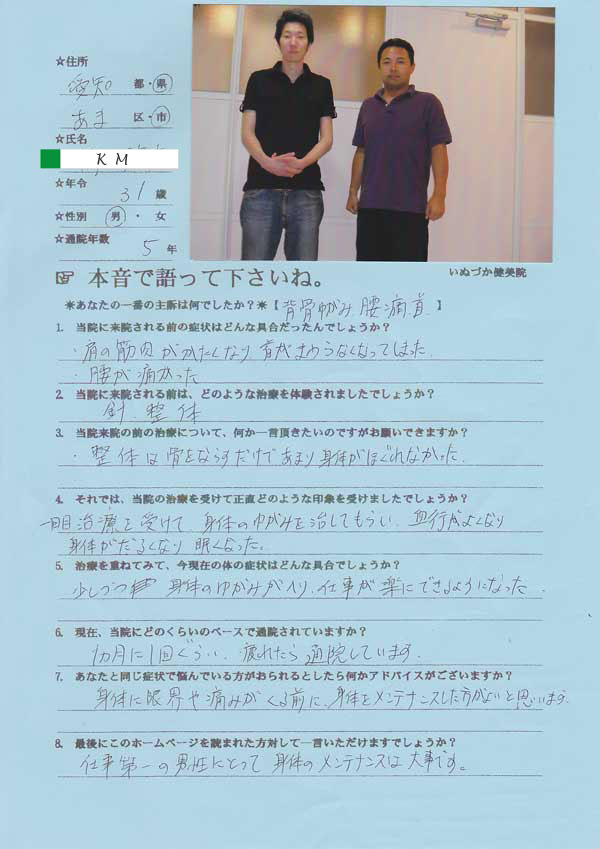 ☆住所
愛知 都・県
あま 区・市
☆氏名
K M
☆年令
31 歳
☆性別 男・女
☆通院年数
5 年
いぬづか健美院
☞ 本音で語って下さいね。
＊あなたの一番の主訴は何でしたか？＊【背骨ゆがみ 腰痛 首】
1. 当院に来院される前の症状はどんな具合だったんでしょうか？
・肩の筋肉がかたくなり首がまわらなくなってしまった
・腰が痛かった
2. 当院に来院される前は、どのような治療を体験されましたでしょうか？
針、整体
3. 当院来院の前の治療について、何か一言頂きたいのですがお願いできますか？
・整体は骨をならすだけであまり身体がほぐれなかった
4. それでは、当院の治療を受けて正直どのような印象を受けましたでしょうか？
一回目治療を受けて 身体のゆがみを治してもらい 血行がよくなり
身体がだるくなり 眠くなった。
5. 治療を重ねてみて、今現在の体の症状はどんな具合でしょうか？
少しづつ 身体のゆがみがへり、仕事が楽にできるようになった
6. 現在、当院にどのくらいのペースで通院されていますか？
1カ月に1回ぐらい、疲れたら通院しています。
7. あなたと同じ症状で悩んでいる方がおられるとしたら何かアドバイスがございますか？
身体に限界や痛みがくる前に、身体をメンテナンスした方がよいと思います
8. 最後にこのホームページを読まれた方対して一言いただけますでしょうか？
仕事第一の男性にとって 身体のメンテナンスは大事です。